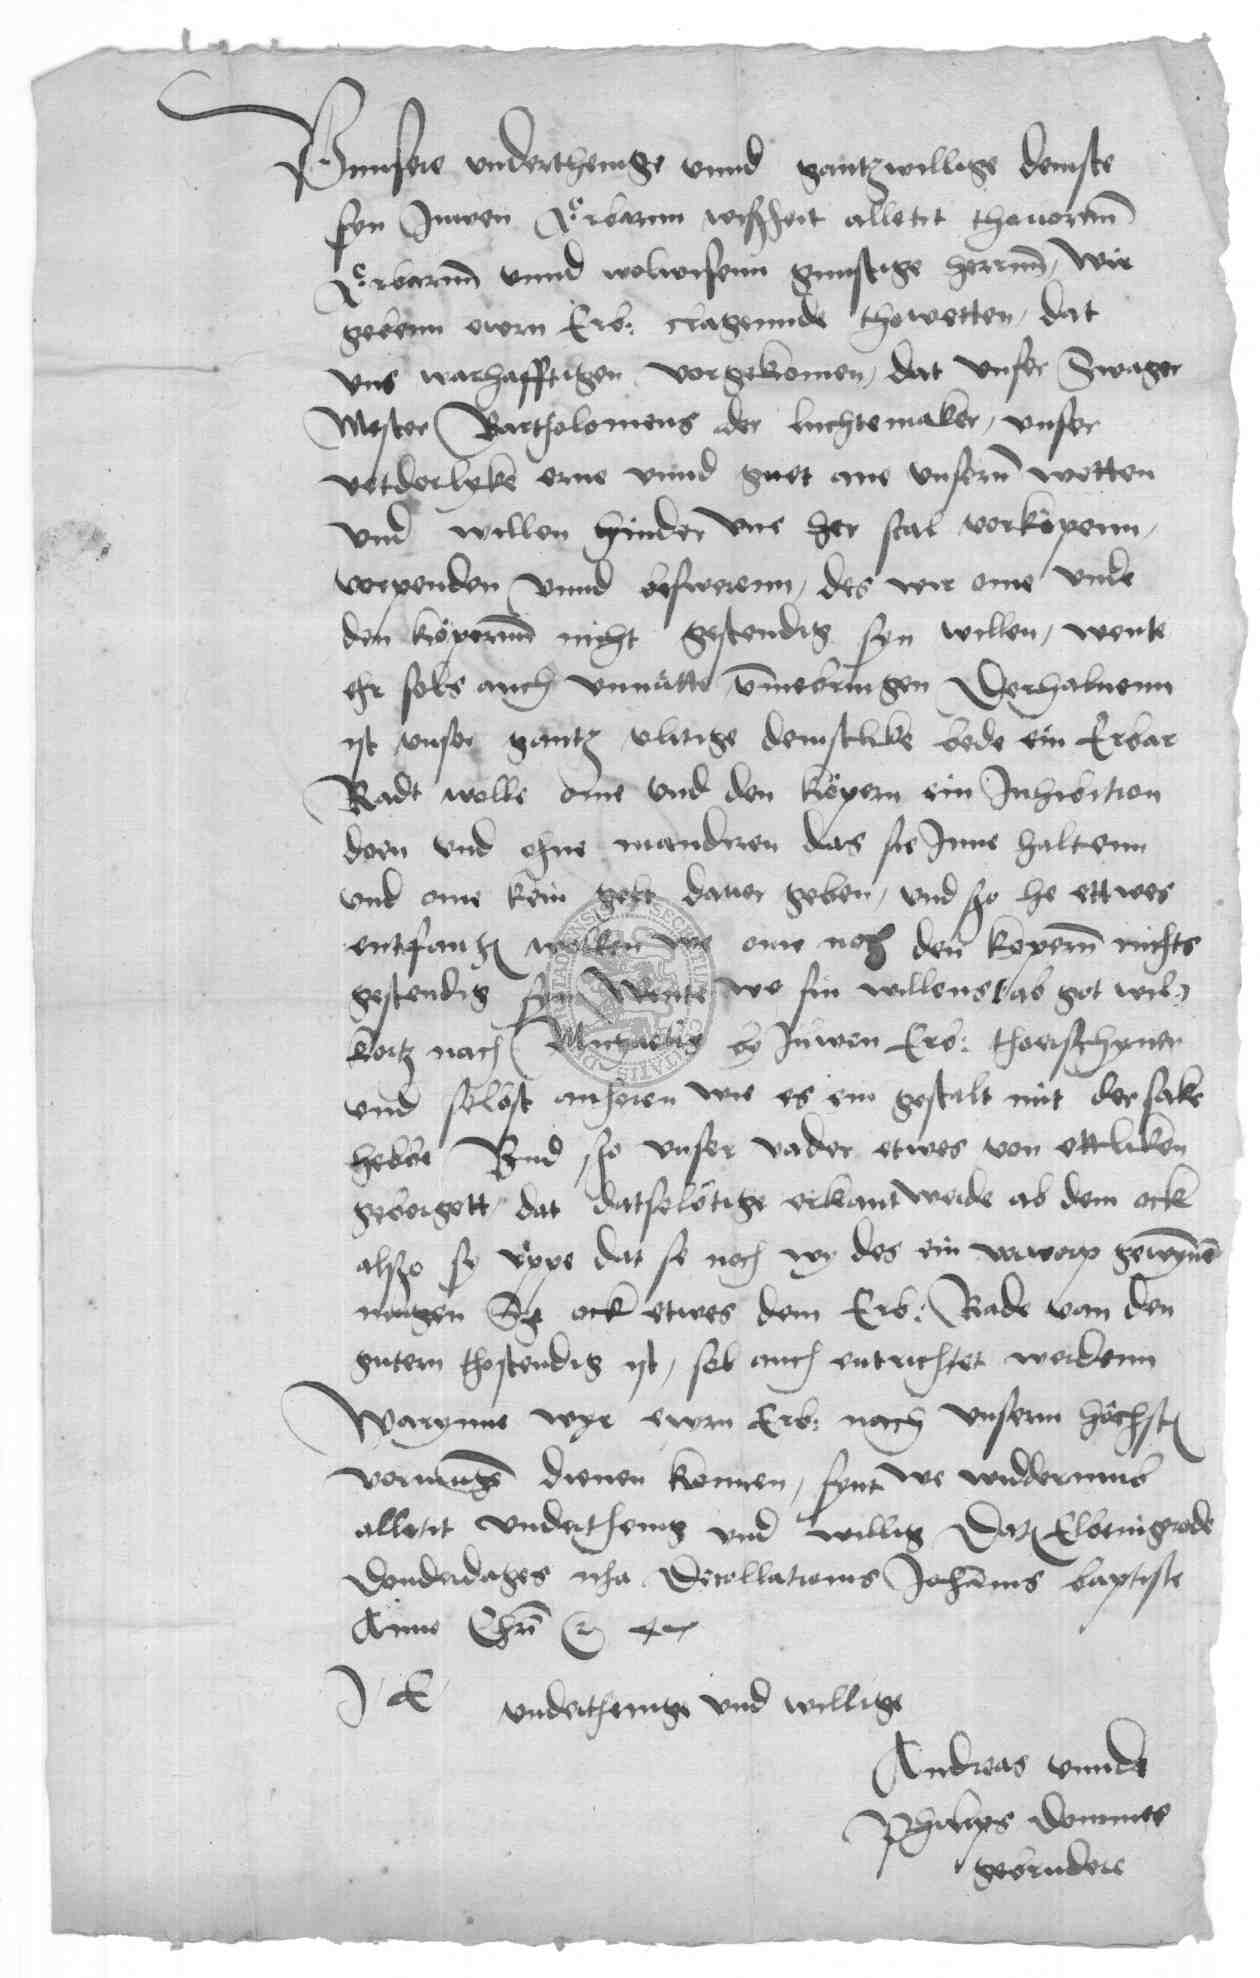 Vnnsere vnderthenige vnnd gantzwillige denste
syn Juwen Erbarnn wißheit alletit thouornn
Erbarnn vnnd wolwisenn gunstige herrnn, Wir
gebenn ewrn Erb: clagennde thowetten, dat
vns warhafftigen vorgekomen, dat vnser Swager
Mester Bartholomeus der luchtemaker, vnser
vetderlyke erue vnnd guet ane vnsernn wetten
vnd willen hinder vns her scal vorkopenn,
vorpenden vnnd besweren, des wir ome vnde
den kopernn nicht gestendig syn willen, wente
ehr sols auch vnnutte vmebringen Derhaluenn
ist vnser gantz vlitige denstlike bede ein Erbar
Radt wolle ome vnd den kopern ein Inhibition
doen vnd ohne mandiren das sie Inne haltenn
vnd ome kein gelt dauor geben, vnd szo he ettwes
entfangen wolken we ome noch den kopernn nichts
gestendig syn Wente we sin willens ab got wil
kortz nach Michaelis by Juwen Erb: thoerschynen
vnd selbst anhoren wie es ein gestalt mit der sake
hebbe Vnd szo vnser vader etwes von ettliken
geborgett, dat datselbtige erkant werde ab dem ock
alszo sy vppe dat se noch wy des ein vorworp gewynnen
mugen Szo ock etwes dem Erb: Rade van den
gutern thostendig ist, sol auch entrichtet werdenn
Warynne wyr ewrn Erb: nach vnserm höchsten
vormugen dienen konnen, synt we widderumb
alletit vnderthenig vnd willig Datum Elbeingrode
donderdages nha Decollationis Johannis baptiste
Anno Christi
J E vnderthenige vnd willige
Andreas vnnde
Philips Dommes
gebrudere